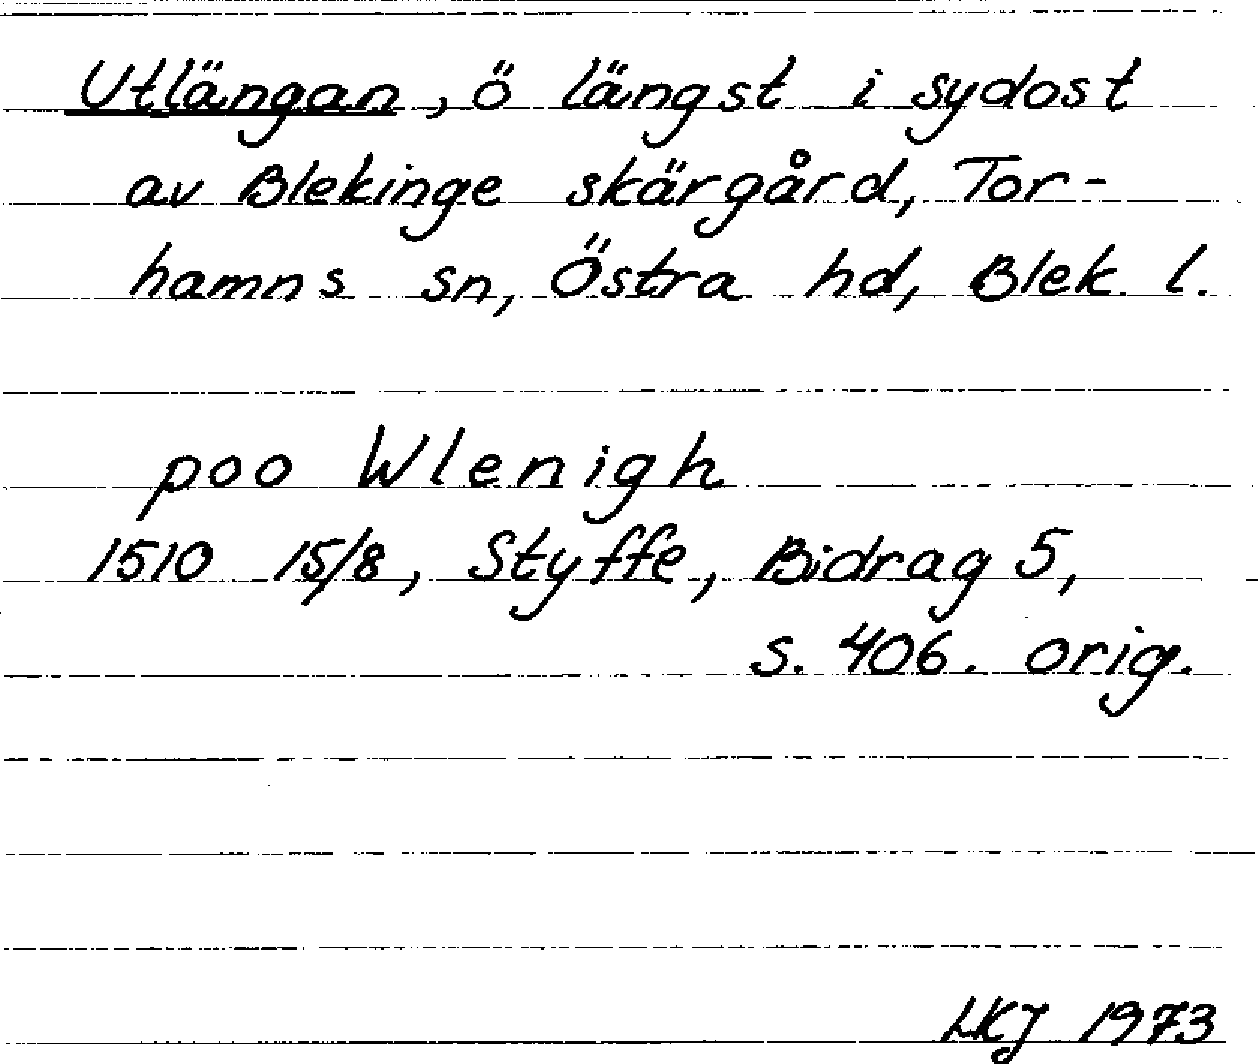 Utlängan, ö längst i sydost
av Blekinge skärgård, Tor-
hamns sn, Östra hd, Blek. l.
poo Wlenigh
1510 15/8, Styffe, Bidrag 5,
s. 406. orig.
LKJ 1973